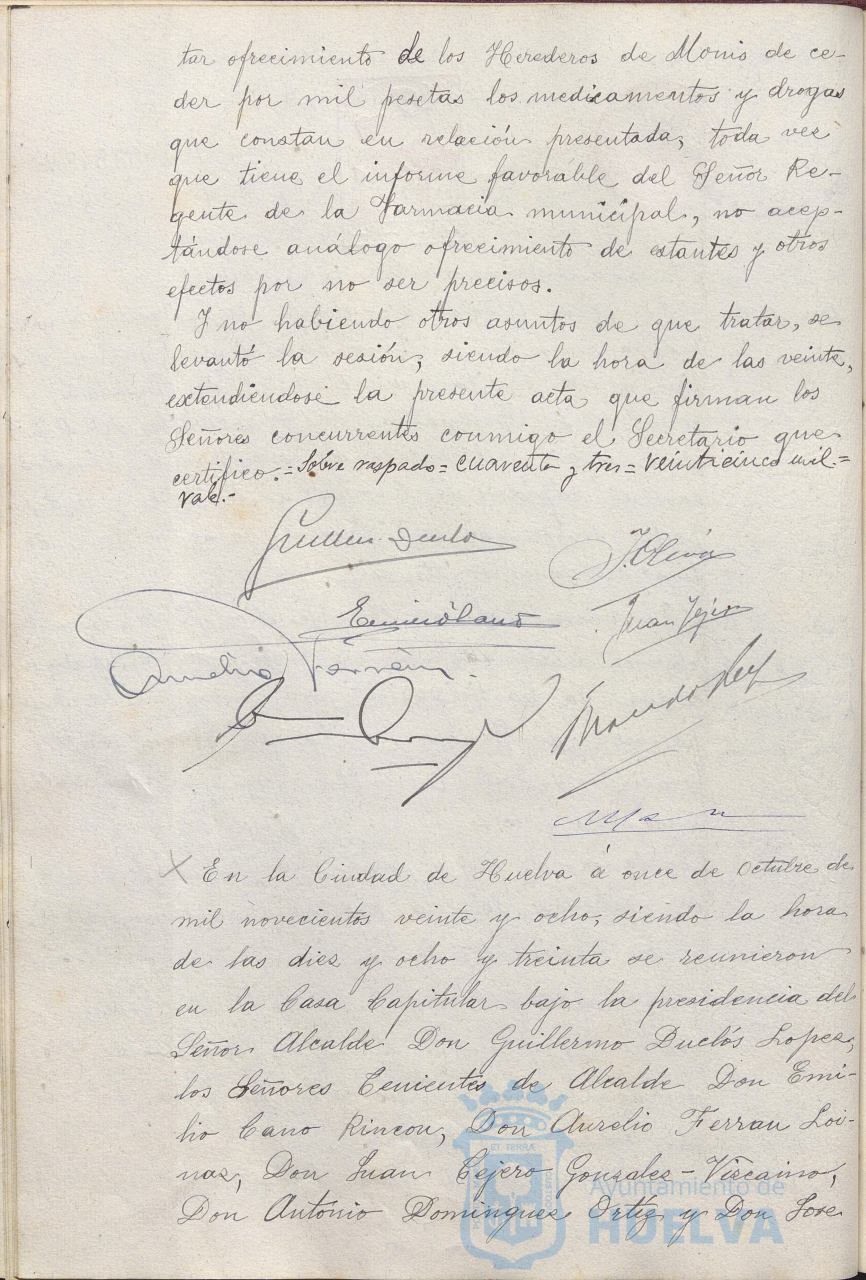 tar ofrecimiento de los Herederos de Monis de ce-
der por mil pesetas los medicamentos y drogas
que constan en relación presentada, toda vez
que tiene el informe favorable del Señor Re-
gente de la Farmacia municipal, no acep-
tándose análogo ofrecimiento de estantes y otros
efectos por no ser precisos.
Y no habiendo otros asuntos de que tratar, se
levantó la sesión, siendo la hora de las veinte,
extendiéndose la presente acta que firman los
Señores concurrentes conmigo el Secretario que
certifico.=Sobre raspado=cuarenta y tres=veinticinco mil.=
Vale.-
J. Oliva
Emilio Cano
Juan Tejero
Aurelio Ferrán
X En la Ciudad de Huelva á once de Octubre de
mil novecientos veinte y ocho, siendo la hora
de las diez y ocho y treinta se reunieron
en la Casa Capitular bajo la presidencia del
Señor Alcalde Don Guillermo Duclós Lopez,
los Señores Tenientes de Alcalde Don Emi-
lio Cano Rincon, Don Aurelio Ferran Loi-
naz, Don Juan Tejero Gonzalez-Vizcaino,
Don Antonio Dominguez Ortíz y Don Jose
Ayuntamiento de
HUELVA